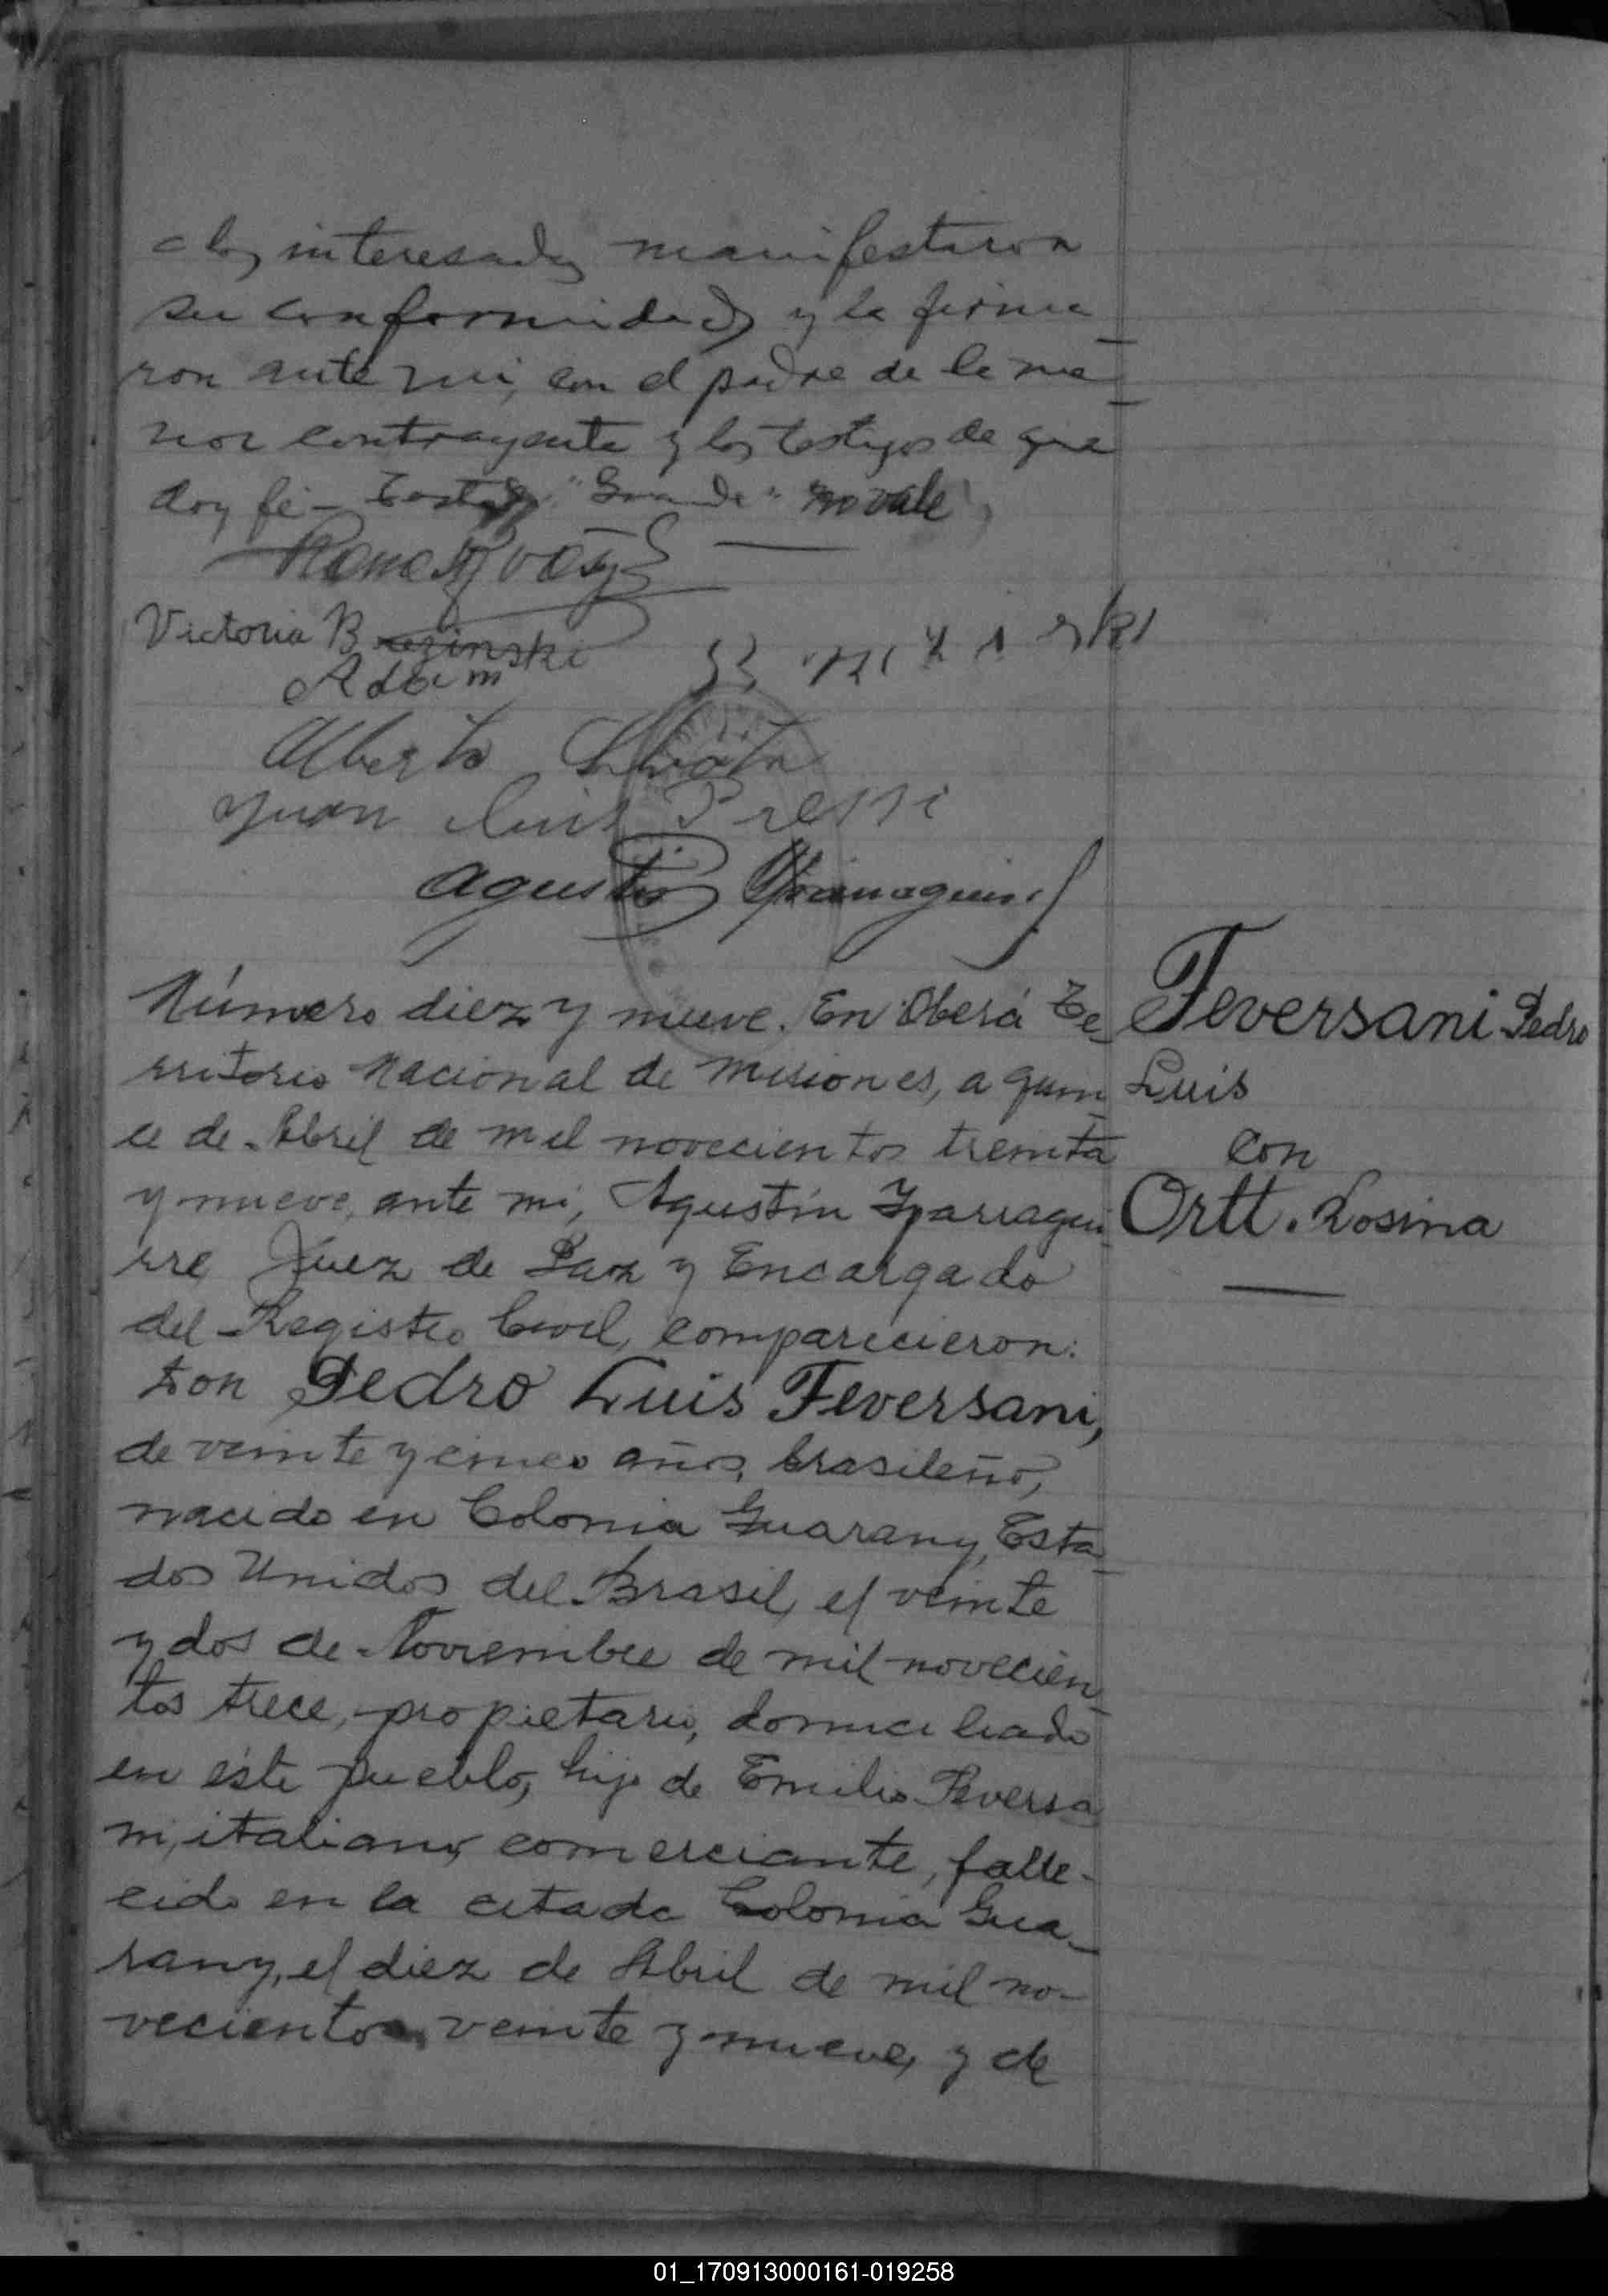 a los interesados manifestaron
su conformidad y la firma
ron ante mi, con el padre de la me
nor contrayente y los testigos de que
doy fé - Testado "Grande" no vale
Victoria Brezinski
Adam
Alberto
Juan Luis Pressi
Agustin Yparraguirre
Número diez y nueve. En Oberá Te
rritorio Nacional de Misiones, a quin
ce de Abril de mil novecientos treinta
y nueve, ante mi, Agustín Yparragui
rre, Juez de Paz y Encargado
del Registro Civil, comparecieron:
Don Pedro Luis Feversani,
de veinte y cinco años, brasileño,
nacido en Colonia Guarany, Esta
dos Unidos del Brasil, el veinte
y dos de Noviembre de mil novecien
tos trece, propietario, domiciliado
en éste pueblo, hijo de Emilio Feversa
ni, italiano, comerciante, falle-
cido en la citada Colonia Gua-
rany, el diez de Abril de mil no-
vecientos veinte y nueve, y de
Feversani Pedro
Luis
con
Ortt. Rosina
01_170913000161-019258